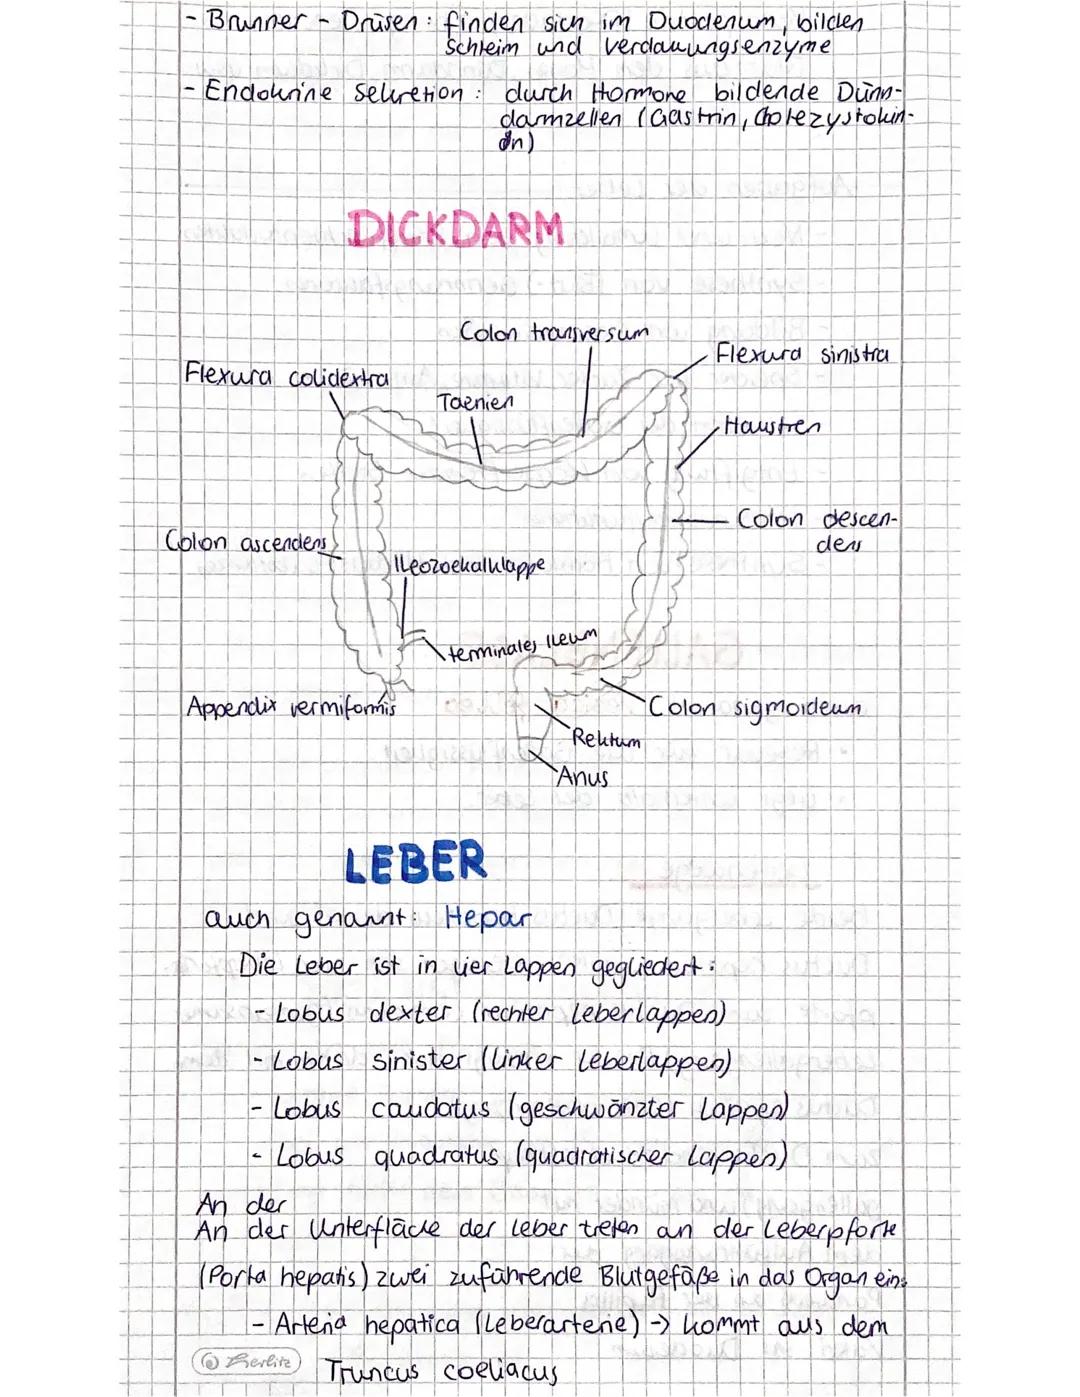 - Brunner - Drüsen : finden sich im Duodenum, bilden
Schleim und Verdauungsenzyme
- Endokrine Sekretion : durch Hormone bildende Dünn-
darmzellen (Gastrin, Cholezystokin-
in)
DICKDARM
Colon transversum
Flexura sinistra
Flexura colidextra
Taenien
Haustren
Colon descen-
dens
Colon ascendens
Ileozoekalklappe
terminales Ileum
Appendix vermiformis
Colon sigmoideum
Rektum
Anus
LEBER
auch genannt: Hepar
Die Leber ist in vier Lappen gegliedert:
- Lobus dexter (rechter Leberlappen)
- Lobus sinister (linker Leberlappen)
- Lobus caudatus (geschwänzter Lappen)
- Lobus quadratus (quadratischer Lappen)
An der
An der Unterfläche der Leber treten an der Leberpforte
(Porta hepatis) zwei zuführende Blutgefäße in das Organ ein:
- Arteria hepatica (Leberarterie) -> kommt aus dem
Truncus coeliacus
Herlitz